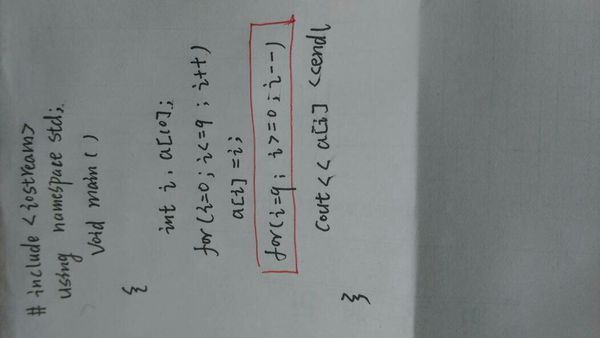 # include <iostream>
using namespace std;
Void main ( )
{
int i, a[10];
for (i=0; i<=9; i++)
a[i] =i;
for(i=9; i>=0; i--)
cout << a[i] <<endl
}